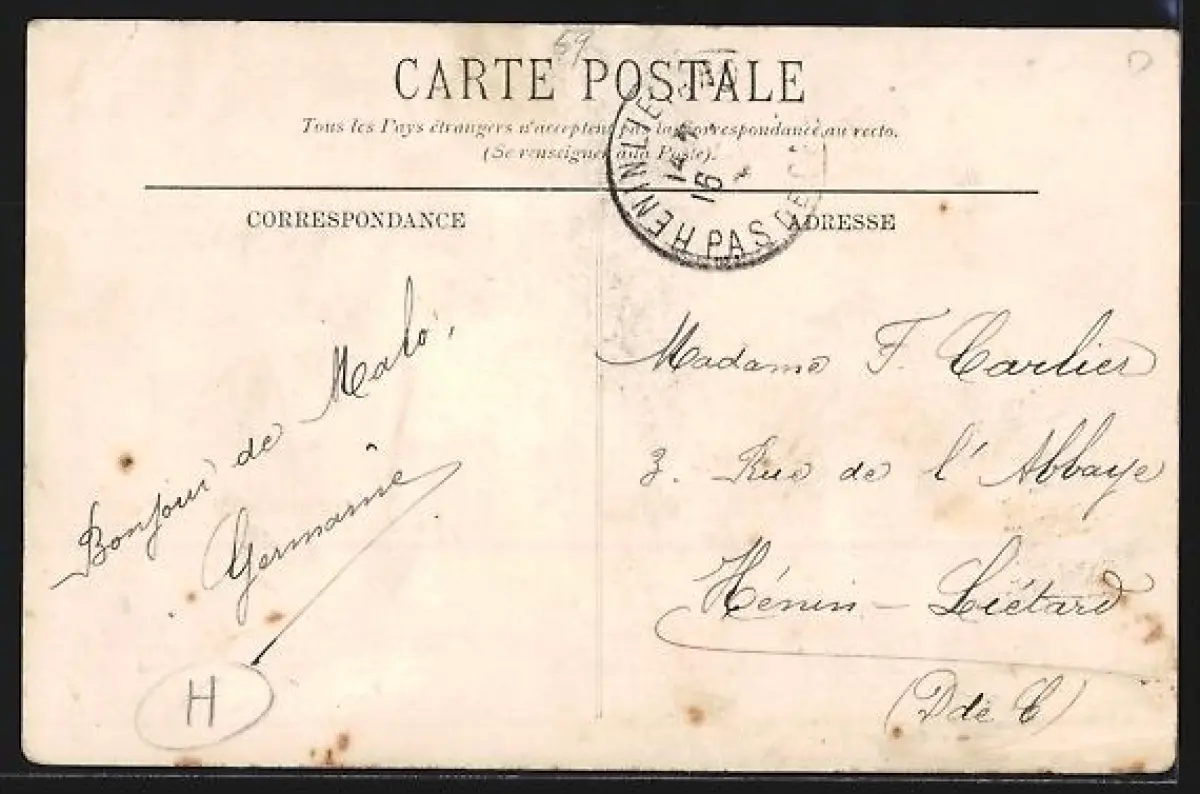 59
CARTE POSTALE
Tous les Pays étrangers n'acceptent pas la Correspondance au recto.
(Se renseigner à la Poste).
CORRESPONDANCE
ADRESSE
HENIN LIE
PAS DE C
14
16
Bonjour de Malo,
Germaine
H
Madame F. Carlier
3. Rue de l'Abbaye
Hénin - Liétard
(P de C)